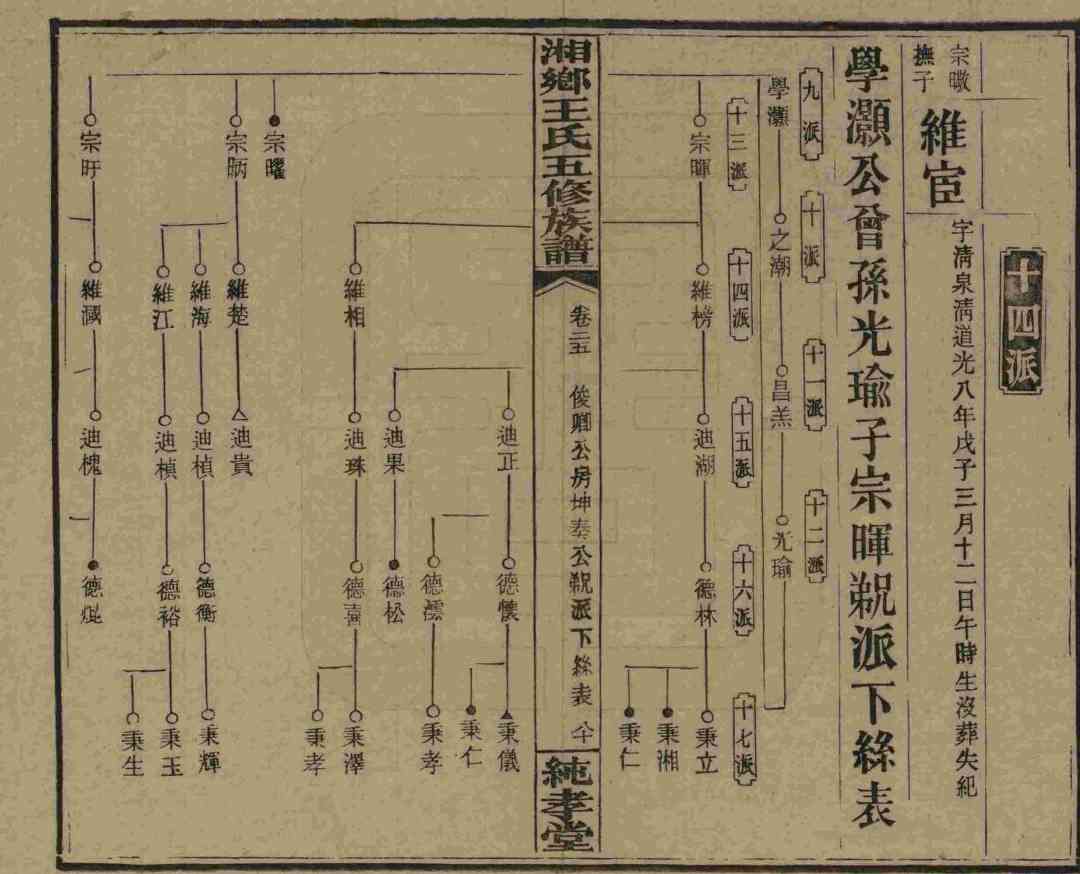 十四派
宗暾
撫子
維宦
字淸泉淸道光八年戊子三月十二日午時生沒葬失紀
學灝公曾孫光瑜子宗暉䙷派下絲表
九派
十派
十一派
十二派
學灝
之潮
昌羔
光瑜
十三派
十四派
十五派
十六派
十七派
宗暉
維榜
迪湖
德林
秉立
秉湘
秉仁
湘鄉王氏五修族譜
卷三五
俊卿公房坤奉公䙷派下絲表
純孝堂
迪正
德懷
秉儀
秉仁
德濡
秉孝
迪果
德松
維相
迪珠
德喜
秉澤
秉孝
宗曜
宗昞
維楚
迪貴
維海
迪楨
德衡
秉輝
維江
迪楨
德裕
秉玉
秉生
宗旴
維藩
迪槐
德焜